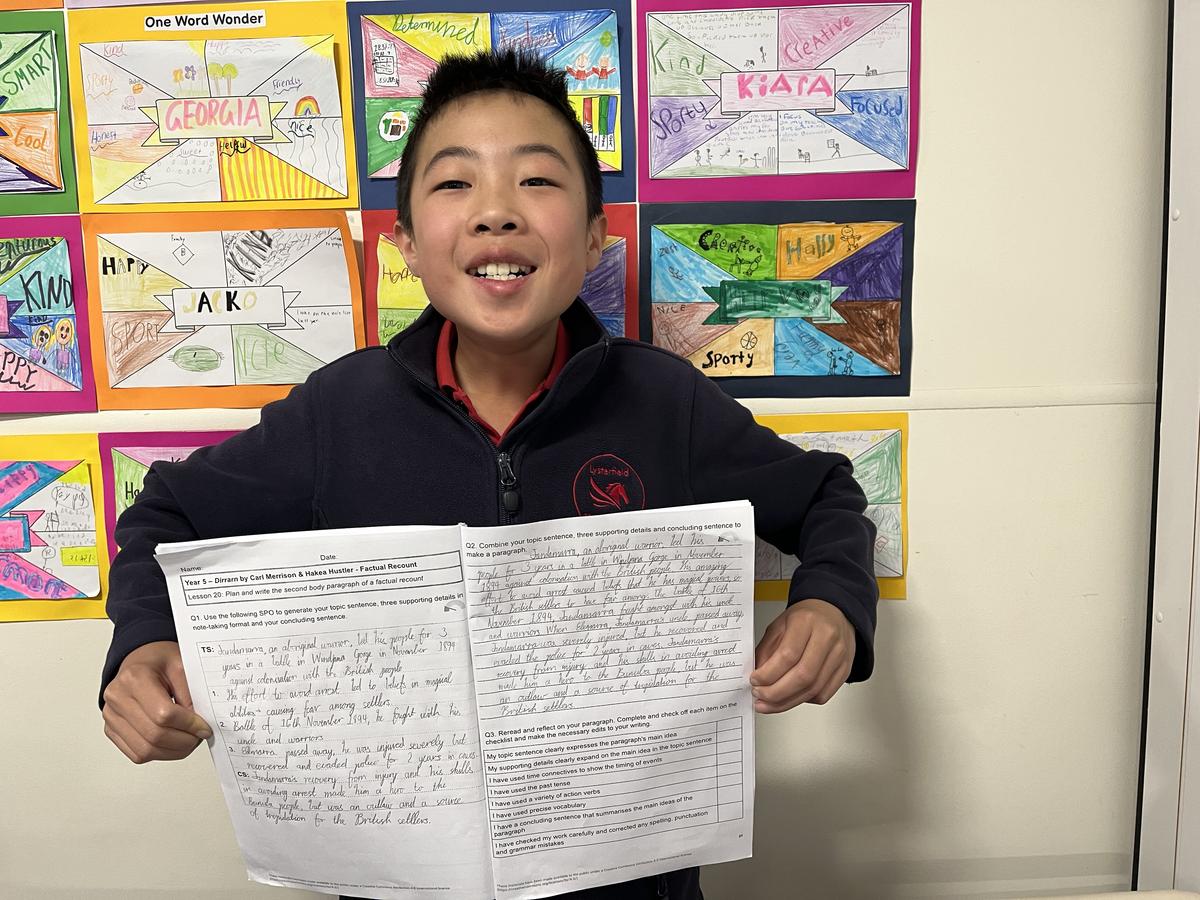 One Word Wonder
SMART
Cool
Kind
Sporty
Friendly
GEORGIA
Honest
nice
sweet
Helpful
Determined
Kindness
Kind
Creative
KIARA
Sporty
Focused
KIND
HAPPY
KIND
JACKO
SPORT
NICE
Creative
Happy
NICE
Sporty
Lysterfield
Name:
Date:
Year 5 – Dirrarn by Carl Merrison & Hakea Hustler - Factual Recount
Lesson 20: Plan and write the second body paragraph of a factual recount
Q1. Use the following SPO to generate your topic sentence, three supporting details in
note-taking format and your concluding sentence.
TS: Jandamarra, an aboriginal warrior, led his people for 3
years in a battle in Windjana Gorge in November 1894
against colonisation with the British people
1. His effort to avoid arrest led to beliefs in magical
abilities → causing fear among settlers.
2. Battle of 16th November 1894, he fought with his
uncle and warriors
3. Ellemarra passed away, he was injured severely but
recovered and evaded police for 2 years in caves.
CS: Jandamarra's recovery from injury and his skills
in avoiding arrest made him a hero to the
Bunuba people, but was an outlaw and a source
of trepidation for the British settlers.
Q2. Combine your topic sentence, three supporting details and concluding sentence to
make a paragraph.
Jandamarra, an aboriginal warrior, led his
people for 3 years in a battle in Windjana Gorge in November
1894 against colonisation with the British people. His amazing
effort to avoid arrest caused beliefs that he has magical powers, so
the British settlers to have fear among. the battle of 16th
November 1894, Jandamarra fought amongst with his uncle
and warriors. When Ellemarra, Jandamarra's uncle passed away,
Jandamarra was severely injured, but he recovered and
evaded the police for 2 years in caves. Jandamarra's
recovery from injury and his skills in avoiding arrest
made him a hero to the Bunuba people, but he was
an outlaw and a source of trepidation for the
British settlers.
Q3. Reread and reflect on your paragraph. Complete and check off each item on the
checklist and make the necessary edits to your writing.
My topic sentence clearly expresses the paragraph's main idea
My supporting details clearly expand on the main idea in the topic sentence
I have used time connectives to show the timing of events
I have used the past tense
I have used a variety of action verbs
I have used precise vocabulary
I have a concluding sentence that summarises the main ideas of the
paragraph
I have checked my work carefully and corrected any spelling, punctuation
and grammar mistakes